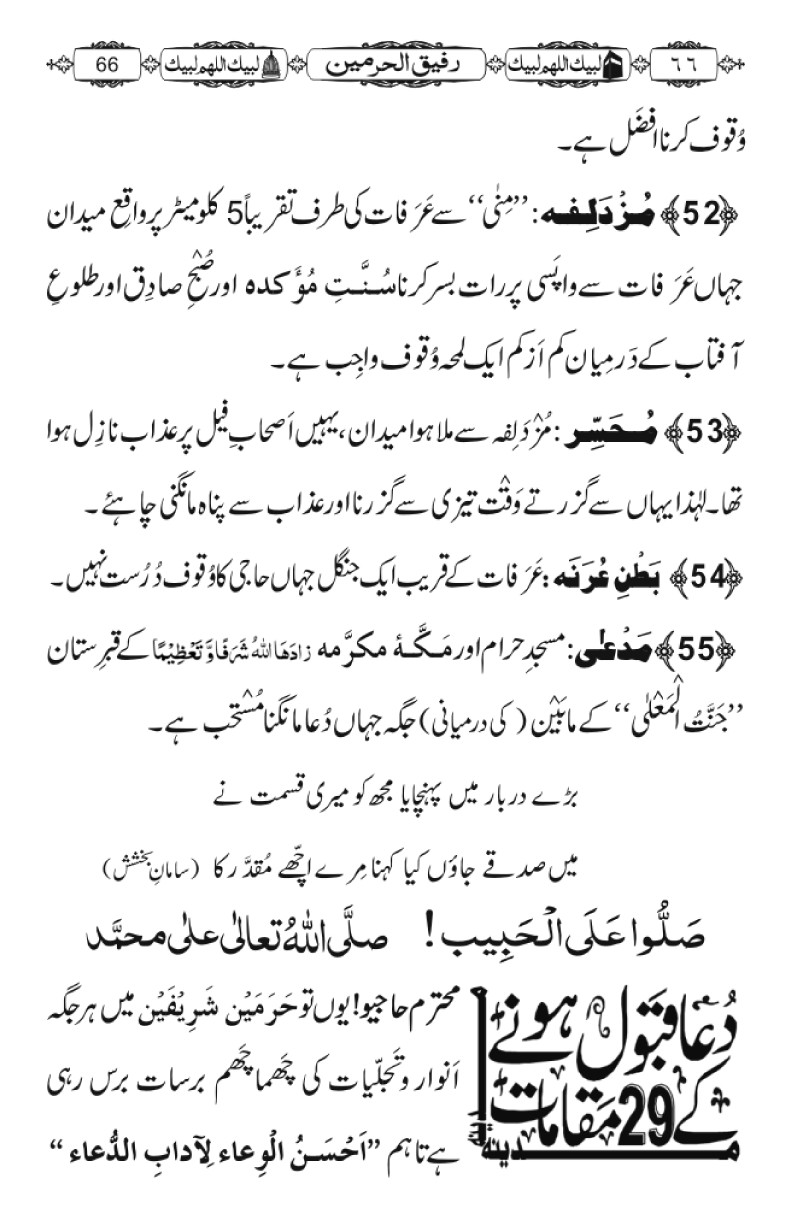 ٦٦ لبیك اللھم لبیك رفیق الحرمین لبیك اللھم لبیك 66
وُقوف کرنا افضَل ہے۔
﴿52﴾ مُزْدَلِفہ: ’’مِنٰی‘‘ سے عَرَفات کی طرف تقریباً 5 کلومیٹر پر واقِع میدان
جہاں عَرَفات سے واپَسی پر رات بسر کرنا سُنَّتِ مُؤَکدہ اور صُبْحِ صادِق اور طلوعِ
آفتاب کے دَرمِیان کم اَز کم ایک لمحہ وُقوف واجِب ہے۔
﴿53﴾ مُحَسِّر: مُزْدَلِفہ سے ملا ہوا میدان، یہیں اَصحابِ فِیل پر عذاب نازِل ہوا
تھا۔ لہٰذا یہاں سے گزرتے وَقْت تیزی سے گزرنا اور عذاب سے پناہ مانگنی چاہئے۔
﴿54﴾ بَطْنِ عُرَنَہ: عَرَفات کے قریب ایک جنگل جہاں حاجی کا وُقوف دُرُست نہیں۔
﴿55﴾ مَدْعٰی: مسجدِ حرام اور مَکَّۂ مکرَّمہ زادَھَا اللہُ شَرَفًا وَّ تَعْظِیْمًا کے قبرِستان
’’جَنَّتُ الْمَعْلٰی‘‘ کے مابَیْن (کی درمیانی) جگہ جہاں دُعا مانگنا مُسْتَحَب ہے۔
بڑے دربار میں پہنچایا مجھ کو میری قسمت نے
میں صدقے جاؤں کیا کہنا مِرے اچّھے مُقدَّر کا (سامانِ بخشش)
صَلُّوا عَلَی الْحَبِیب! صلَّی اللہُ تعالٰی علٰی محمَّد
دُعا قبول ہونے
کے 29 مَقامات
مدینہ
محترم حاجیو! یوں تو حَرَمَیْن شَرِیْفَیْن میں ہر جگہ
اَنوار وتَجلّیات کی چَھماچَھم برسات برس رہی
ہے تاہم ’’اَحْسَنُ الْوِعاء لِآدابِ الدُّعاء‘‘